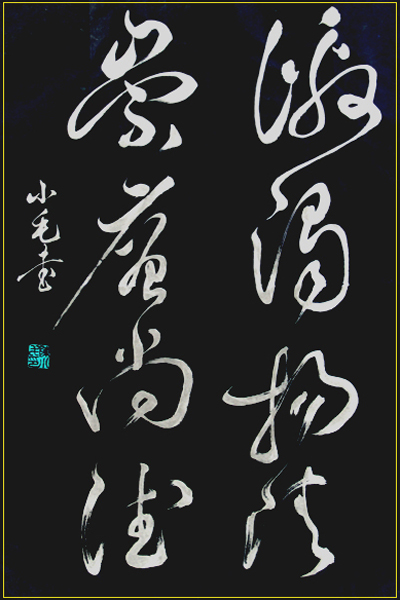 激濁揚清
崇廉尚德
小毛書